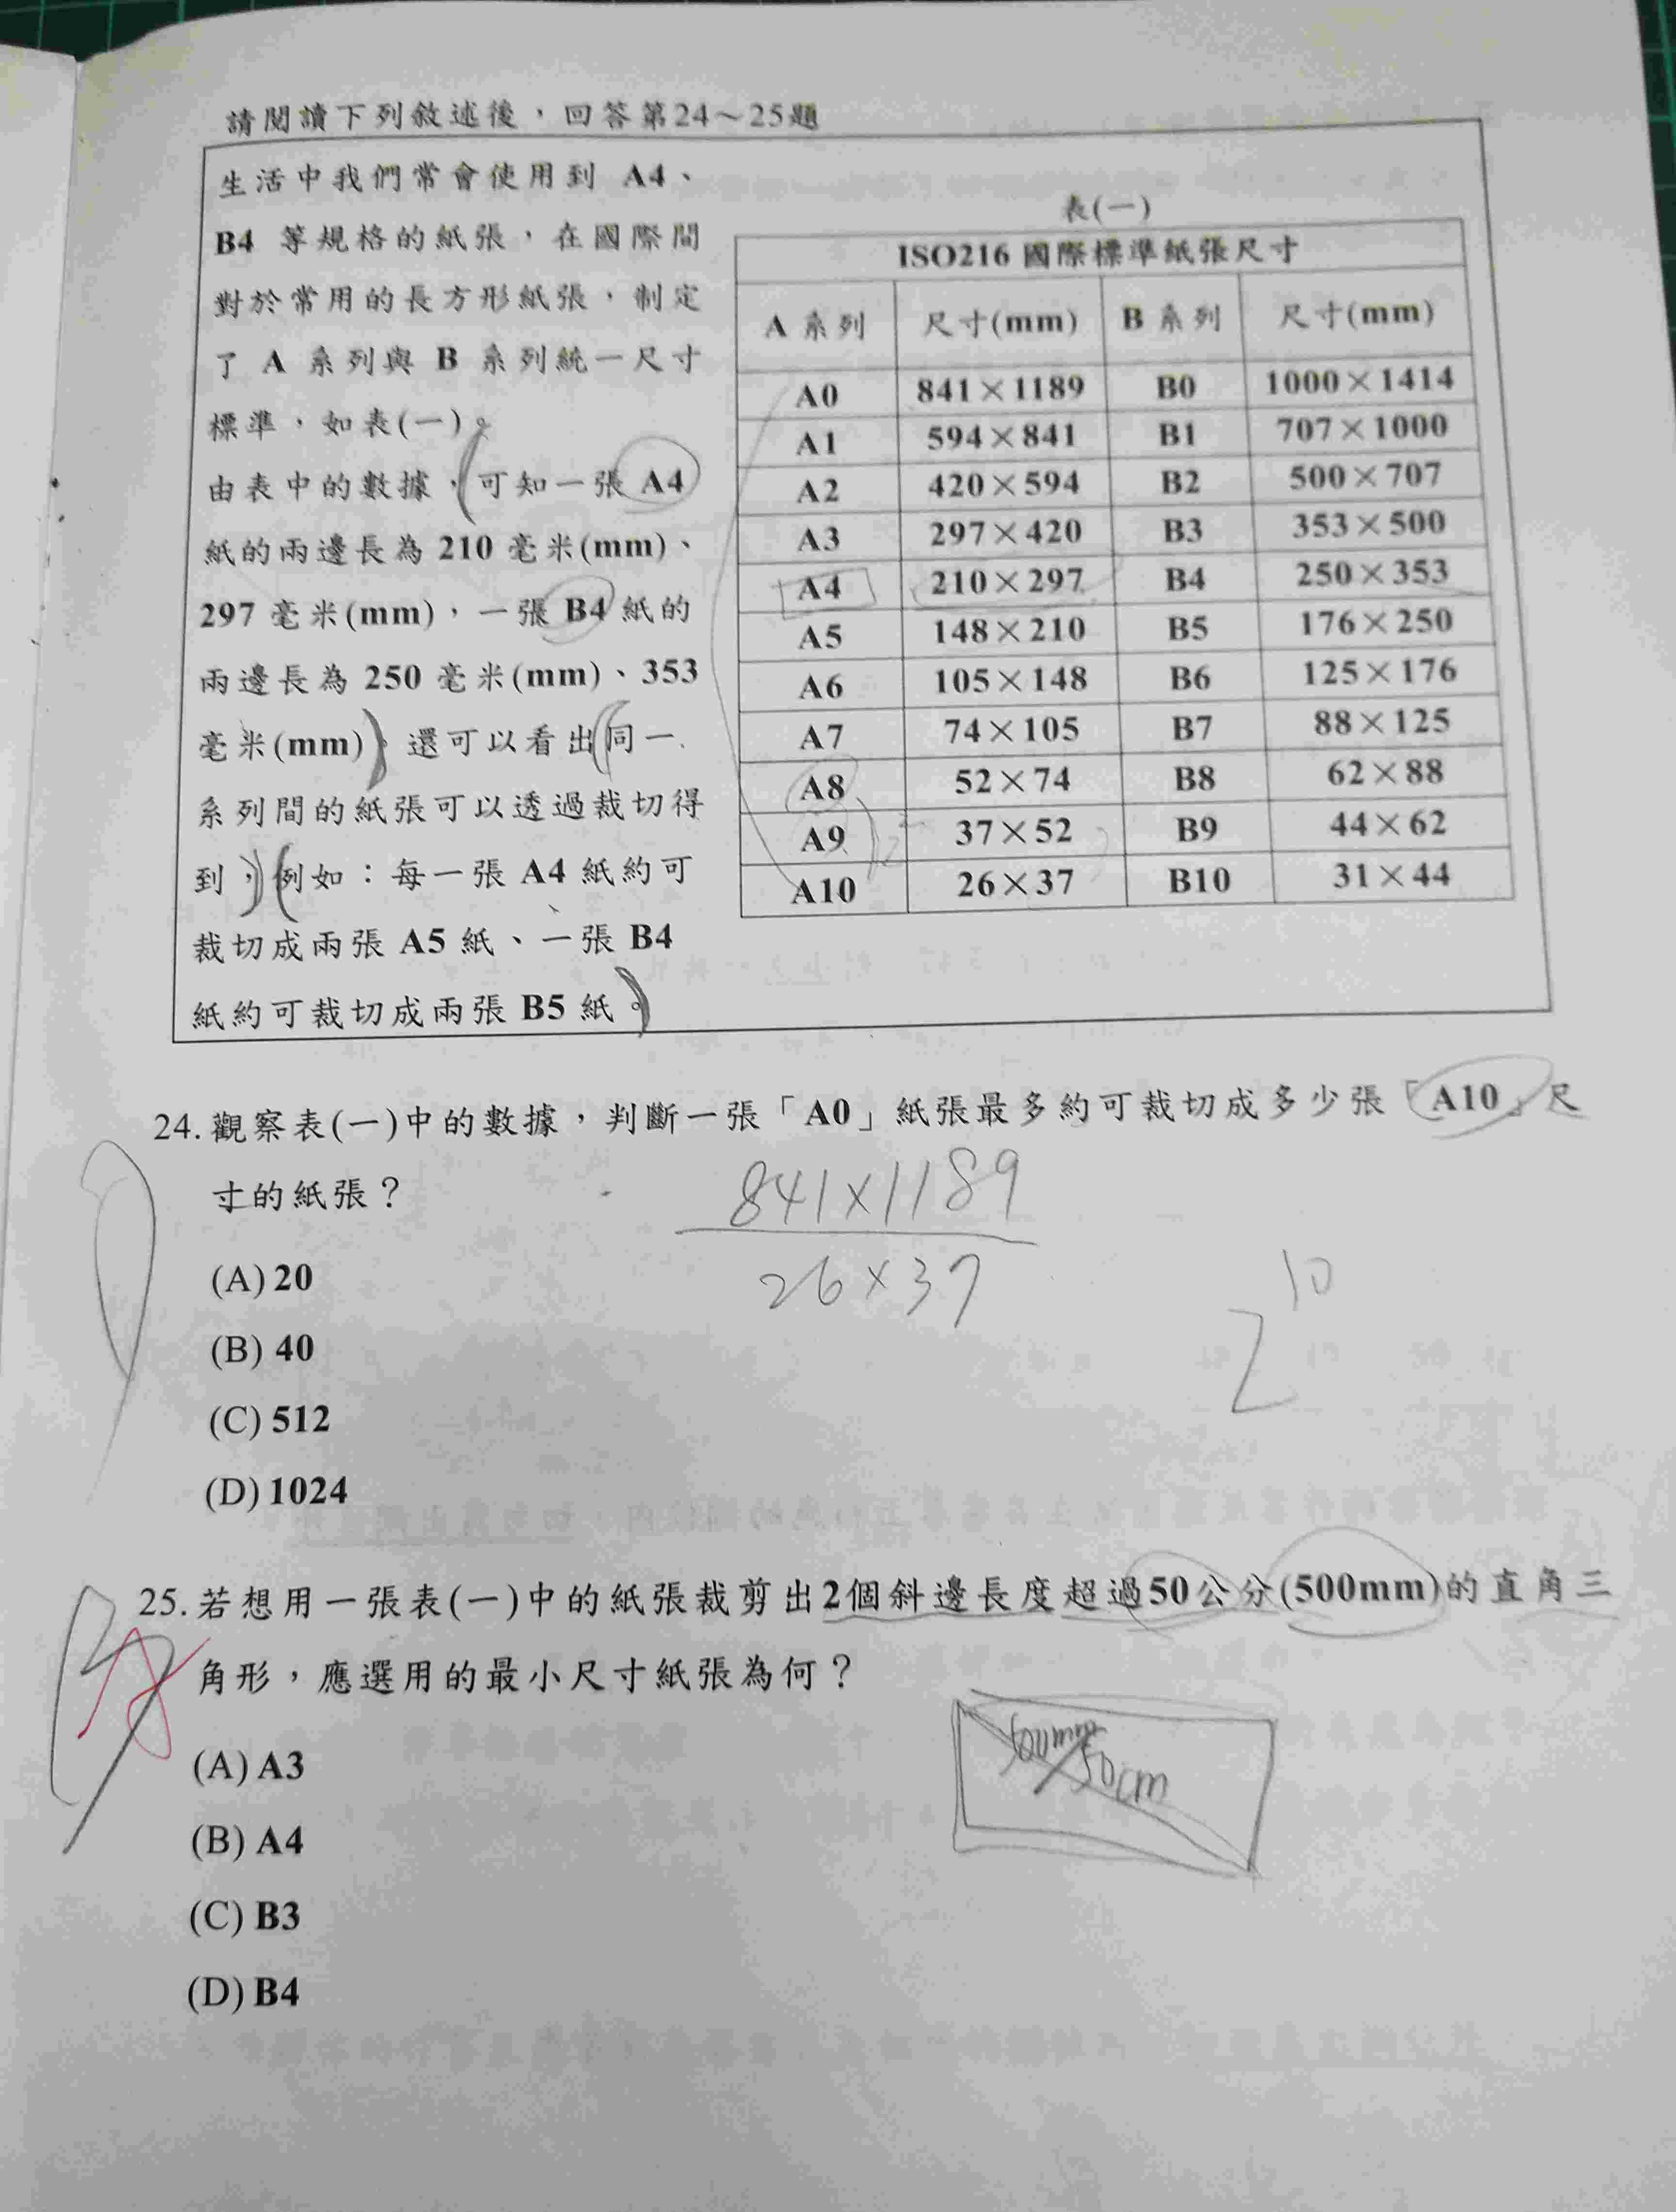 請閱讀下列敘述後，回答第24～25題
生活中我們常會使用到 A4、
B4 等規格的紙張，在國際間
對於常用的長方形紙張，制定
了 A 系列與 B 系列統一尺寸
標準，如表(一)。
由表中的數據，可知一張 A4
紙的兩邊長為 210 毫米(mm)、
297 毫米(mm)，一張 B4 紙的
兩邊長為 250 毫米(mm)、353
毫米(mm)。還可以看出同一
系列間的紙張可以透過裁切得
到，例如：每一張 A4 紙約可
裁切成兩張 A5 紙、一張 B4
紙約可裁切成兩張 B5 紙。
表(一)
ISO216 國際標準紙張尺寸
A 系列 尺寸(mm) B 系列 尺寸(mm)
A0 841×1189 B0 1000×1414
A1 594×841 B1 707×1000
A2 420×594 B2 500×707
A3 297×420 B3 353×500
A4 210×297 B4 250×353
A5 148×210 B5 176×250
A6 105×148 B6 125×176
A7 74×105 B7 88×125
A8 52×74 B8 62×88
A9 37×52 B9 44×62
A10 26×37 B10 31×44
24. 觀察表(一)中的數據，判斷一張「A0」紙張最多約可裁切成多少張「A10」尺
寸的紙張？
841×1189
26×37
2^10
(A) 20
(B) 40
(C) 512
(D) 1024
25. 若想用一張表(一)中的紙張裁剪出2個斜邊長度超過50公分(500mm)的直角三
角形，應選用的最小尺寸紙張為何？
500mm
50cm
(A) A3
(B) A4
(C) B3
(D) B4